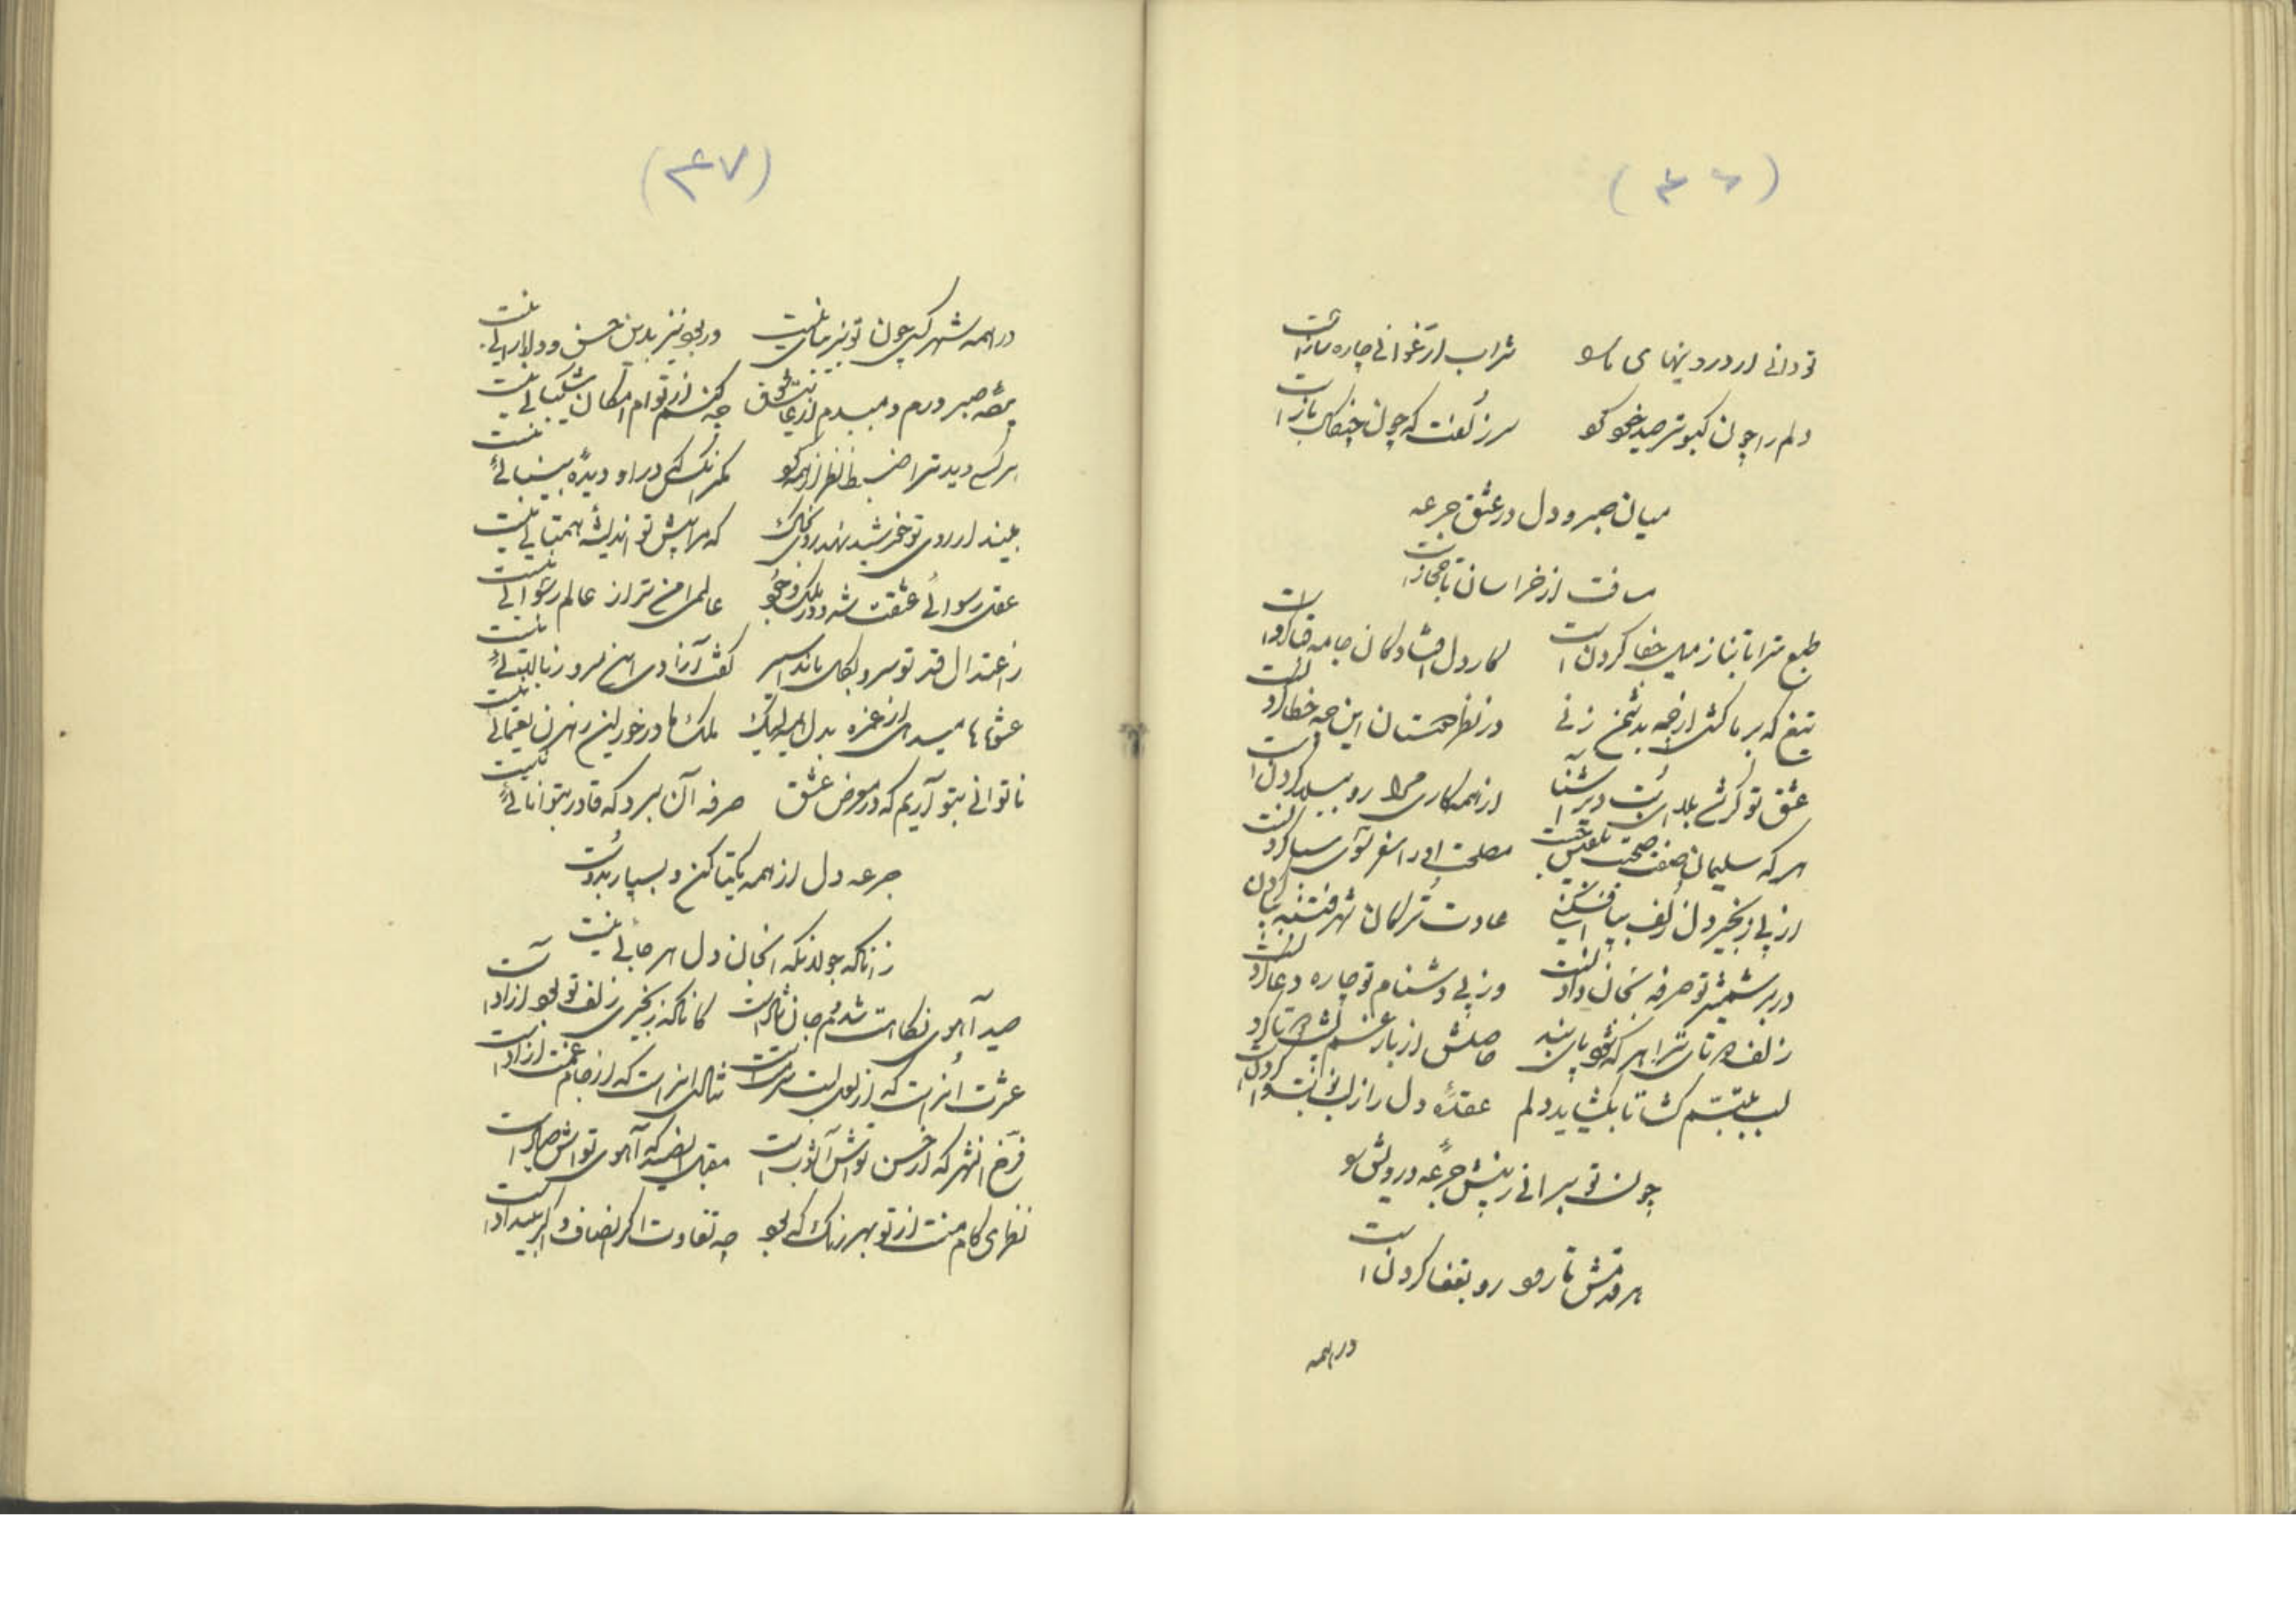 (۴۶)
تو دانی از درد پنهای ما سو شراب ارغوانی چاره سازاست
دلم را چون کبوتر صید خو کو سر زلفت که چون چنگال بازاست
میان صبر و دل در عشق جرعه
مسافت از خراسان تا حجازاست
طبع ترا تا بناز میل جفا کردن است کار دل افتادگان جامه قبا کردن است
تیغ که بر ما کشی از چه بدشمن زنی در نظر دوستان این چه خطا کردن است
عشق تو گر شد بلا دیر است از همه کاری مرا رو ببلا کردن است
هر که سلیمان صفت صحبت بلقیس جست مصلحت او را سفر سوی سبا کردن است
از پی زنجیر دل زلف بیافکندنی است عادت ترکان شهر فتنه بپا کردن
در بر شمشیر تو صرفه بجان دادن است وز پی دشنام تو چاره دعا کردن است
زلف دوتای ترا هر که شود پای بند حاصلش از بار غم پشت دوتا کردن
لب بتبسم گشا تا بگشاید دلم عقدهٔ دل را از لب وا کردن است
چون تو برانی ز پیش جرعهٔ درویش سو
هر قدمش تا رود رو بقفا کردن است
در همه
(۴۷)
در همه شهر کسی چون تو بزیبائی نیست ور بود نیز بدین حسن و دلارائی نیست
صبر ورم و میدم از عاشق چه کنم از توام امکان شکیبائی نیست
هر که دید ترا نظر از همه کو مگر آنکس که در او دیدهٔ بینائی نیست
بیند ار روی تو خورشید نهد روی بخاک که مرا پیش تو اندیشهٔ همتائی نیست
عقل رسوائی عشقت شد و در ملک وجود عالمی امن تر از عالم رسوائی نیست
ز اعتدال قد تو سرو بگل ماند اسیر گفت آزادی این سرو ز بالائی نیست
عشوه‌ها میدهی از غمزه بدل لیک ملک ما درخور این رهزن یغمائی نیست
ناتوانی بتو آریم که در معرض عشق صرفه آن برد که قادر بتوانائی نیست
جرعه دل از همه یکتا کن و بسپار بدوست
زانکه جولانگه آنجان دل هر جائی نیست
صید آهوی نگاهت شدم جان شاد است کانکه زنجیری زلف تو بود آزاد است
عشرت آنراست که از لعل لبت سرمست است شادی آنراست که از جام غمت آزاد است
فرخ آنشهر که از حسن تواش آشوب است مقبل آنصید که آهوی تواش صیاد است
نظرای کام منت از تو بهر رنگ که بود چه تفاوت اگر انصاف و گر بیداد است